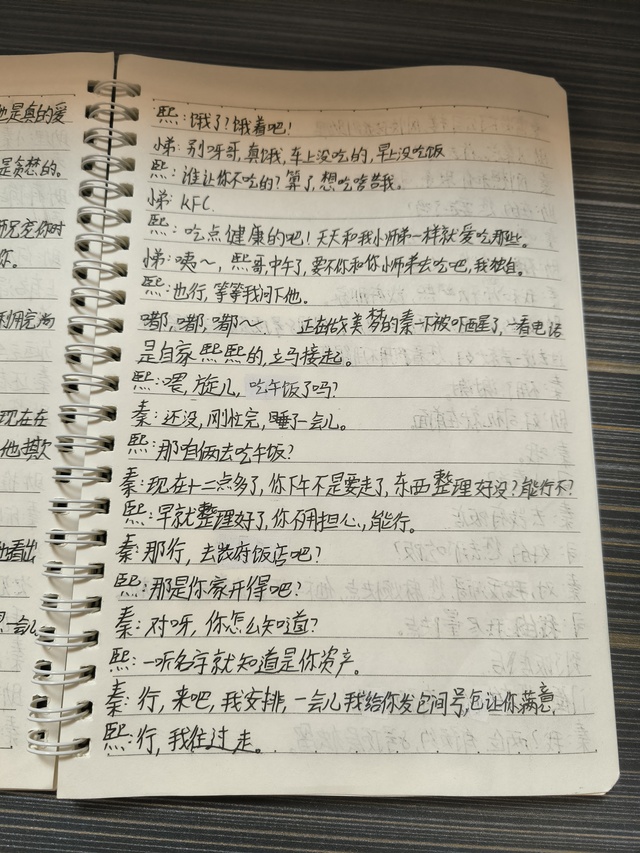 也是真的爱
是贪梦的。
你。
现在在
熙:饿了?饿着吧!
悌:别呀哥,真饿,车上没吃的,早上没吃饭
熙:谁让你不吃的?算了,想吃啥告我。
悌:KFC.
熙:吃点健康的吧!天天和我小师弟一样就爱吃那些。
悌:咦~,熙哥,中午了,要不你和你小师弟去吃吧,我独自。
熙:也行,等等我问下他。
嘟,嘟,嘟~ 正在做美梦的秦一下被吓醒了,一看电话
是自家熙熙的,立马接起。
熙:喂,旋儿,吃午饭了吗?
秦:还没,刚忙完,睡了一会儿。
熙:那咱俩去吃午饭?
秦:现在十二点多了,你下午不是要走了,东西整理好没?能行不?
熙:早就整理好了,你不用担心,能行。
秦:那行,去政府饭店吧?
熙:那是你家开得吧?
秦:对呀,你怎么知道?
熙:一听名字就知道是你资产。
秦:行,来吧,我安排,一会儿我给你发包间号,包让你满意.
熙:行,我往过走。